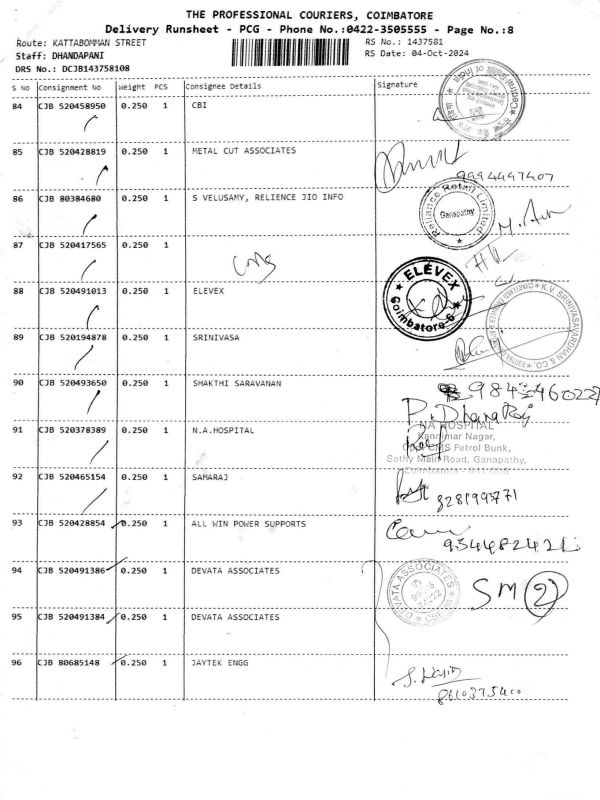 THE PROFESSIONAL COURIERS, COIMBATORE
Delivery Runsheet - PCG - Phone No.:0422-3505555 - Page No.:8
Route: KATTABOMMAN STREET RS No.: 1437581
Staff: DHANDAPANI RS Date: 04-Oct-2024
DRS No.: DCJB143758108
S No Consignment No Weight PCS Consignee Details Signature
84 CJB 520458950 0.250 1 CBI
85 CJB 520428819 0.250 1 METAL CUT ASSOCIATES
9994497407
86 CJB 80384680 0.250 1 S VELUSAMY, RELIENCE JIO INFO
Reliance Retail Limited
Ganapathy
87 CJB 520417565 0.250 1
88 CJB 520491013 0.250 1 ELEVEX
ELEVEX
Coimbatore-6
K.V. SRINIVASAVARDHAN & CO.
89 CJB 520194878 0.250 1 SRINIVASA
90 CJB 520493650 0.250 1 SHAKTHI SARAVANAN
P. Dhana Raj
91 CJB 520378389 0.250 1 N.A.HOSPITAL
NA HOSPITAL
Nagar,
Petrol Bunk,
Sathy Main Road, Ganapathy,
92 CJB 520465154 0.250 1 SAMARAJ
93 CJB 520428854 0.250 1 ALL WIN POWER SUPPORTS
94 CJB 520491386 0.250 1 DEVATA ASSOCIATES
DEVATA ASSOCIATES
SM 2
95 CJB 520491384 0.250 1 DEVATA ASSOCIATES
96 CJB 80685148 0.250 1 JAYTEK ENGG